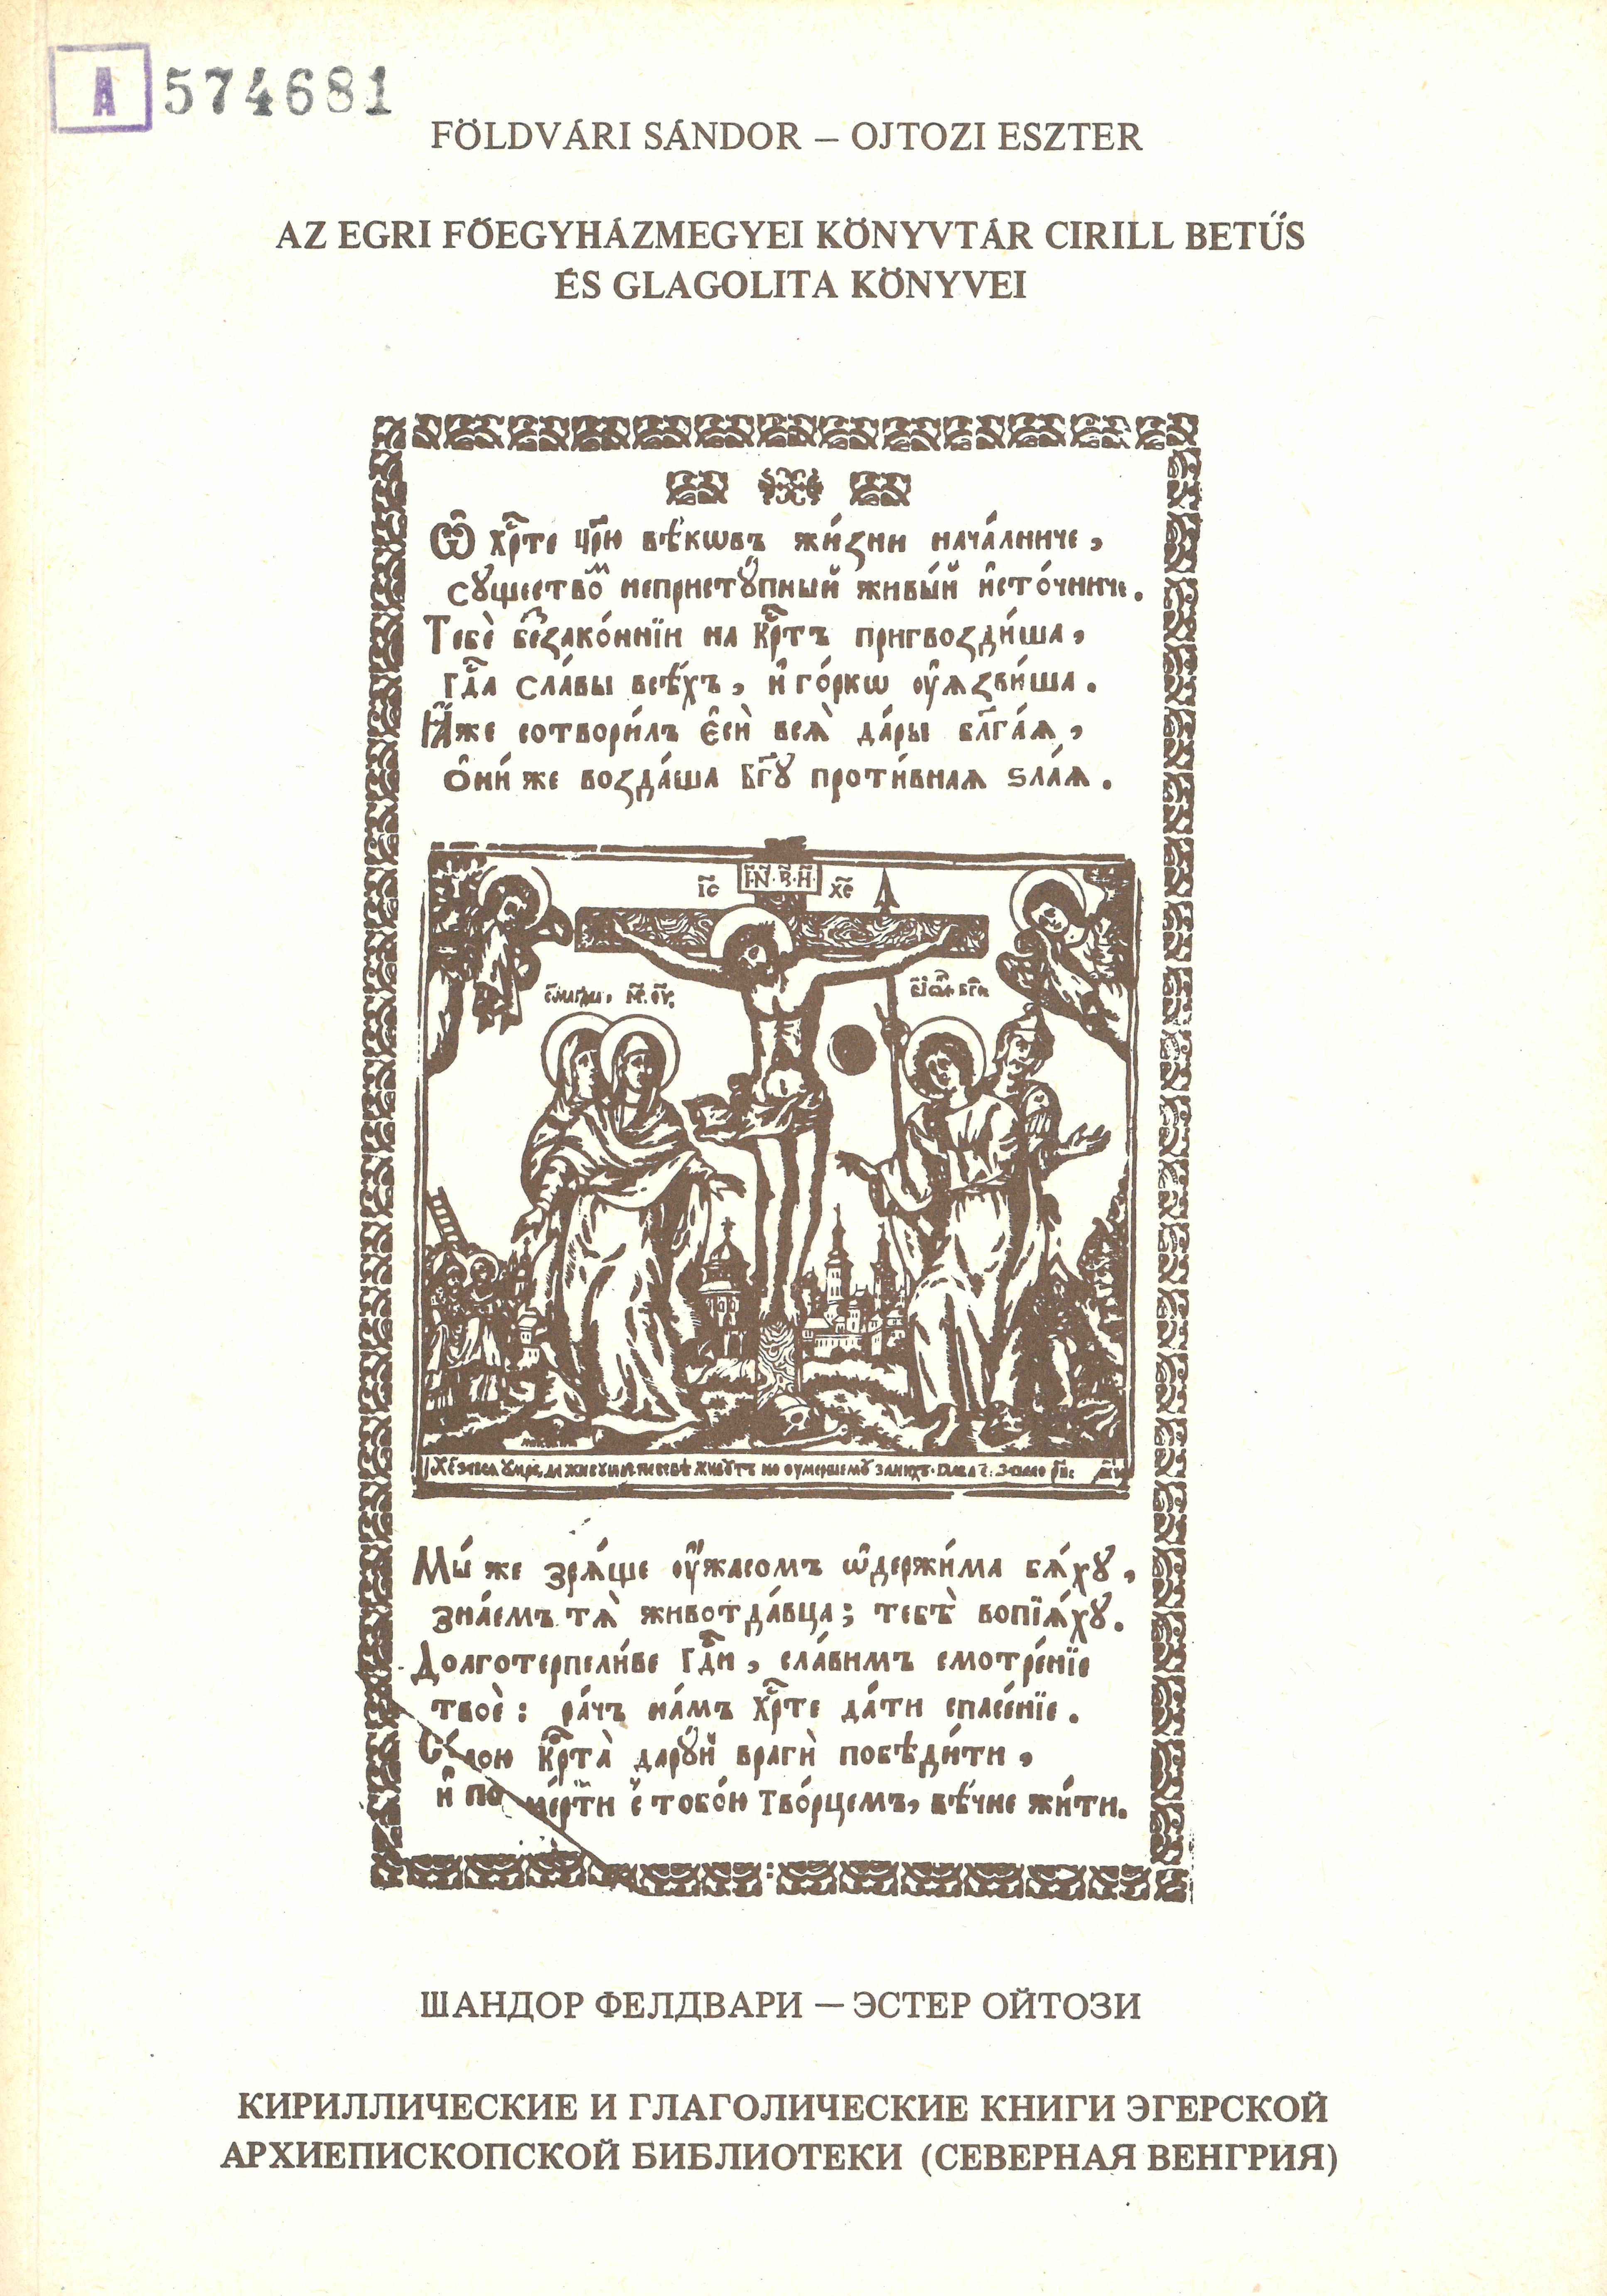 A 574681
FÖLDVÁRI SÁNDOR – OJTOZI ESZTER
AZ EGRI FŐEGYHÁZMEGYEI KÖNYVTÁR CIRILL BETŰS
ÉS GLAGOLITA KÖNYVEI
Ѽ хрⷭ҇те цр҃ю вѣ́кѡвъ жи́зни нача́лниче,
сꙋщество́мъ непристꙋ́пный живы́й и҆сто́чниче.
Тебѐ беззако́ннїи на Крⷭ҇тъ пригвозди́ша,
гдⷭ҇а сла́вы всѣ́хъ, и҆ го́ркѡ ᲂу҆ѧзви́ша.
И҆́мже сотвори́лъ є҆сѝ всѧ̀ да́ры блг҃а́ѧ,
ѻ҆ни́ же возда́ша Бг҃ꙋ проти́внаѧ ѕла́ѧ.
І҃с І҃.Н҃.В҃.І҃. хс҃
Мы́ же зрѧ́ще ᲂу҆́жасомъ ѡ҆держи́ма бѧ́хꙋ,
зна́емъ тѧ̀ животда́вца; тебѣ̀ вопїѧ́хꙋ.
Долготерпели́ве гдⷭ҇и, сла́вимъ смотре́нїе
твоѐ: ра́чъ на́мъ хрⷭ҇те да́ти спасе́нїе.
Крⷭ҇та̀ дарꙋ́й врагѝ побѣди́ти,
и҆ по с тобо́ю Тво́рцемъ, вѣ́чне жи́ти.
ШАНДОР ФЕЛДВАРИ — ЭСТЕР ОЙТОЗИ
КИРИЛЛИЧЕСКИЕ И ГЛАГОЛИЧЕСКИЕ КНИГИ ЭГЕРСКОЙ
АРХИЕПИСКОПСКОЙ БИБЛИОТЕКИ (СЕВЕРНАЯ ВЕНГРИЯ)